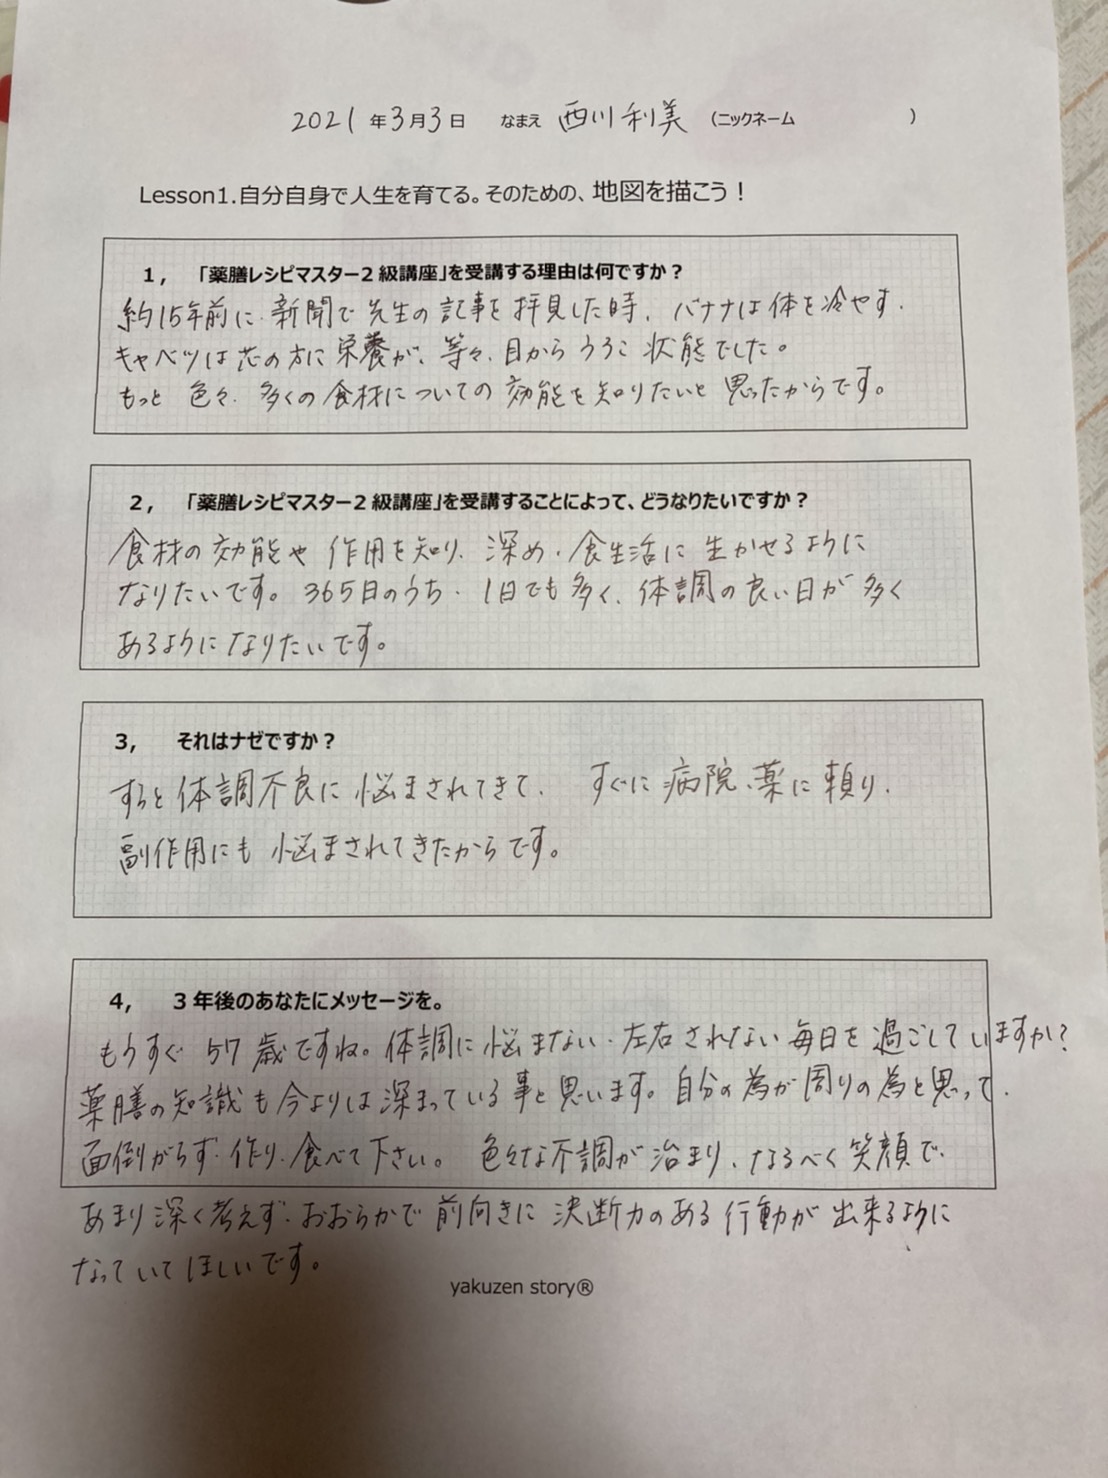 2021年3月3日 なまえ 西川利美 (ニックネーム )
Lesson1.自分自身で人生を育てる。そのための、地図を描こう！
1， 「薬膳レシピマスター2級講座」を受講する理由は何ですか？
約15年前に、新聞で先生の記事を拝見した時、バナナは体を冷やす、
キャベツは芯の方に栄養が、等々、目からうろこ状態でした。
もっと色々、多くの食材についての効能を知りたいと思ったからです。
2， 「薬膳レシピマスター2級講座」を受講することによって、どうなりたいですか？
食材の効能や作用を知り、深め、食生活に生かせるように
なりたいです。365日のうち、1日でも多く、体調の良い日が多く
あるようになりたいです。
3， それはナゼですか？
ずっと体調不良に悩まされてきて、すぐに病院、薬に頼り、
副作用にも悩まされてきたからです。
4， 3年後のあなたにメッセージを。
もうすぐ57歳ですね。体調に悩まない、左右されない毎日を過ごしていますか?
薬膳の知識も今よりは深まっている事と思います。自分の為が周りの為と思って、
面倒がらず、作り、食べて下さい。色々な不調が治まり、なるべく笑顔で、
あまり深く考えず、おおらかで前向きに決断力のある行動が出来るように
なっていてほしいです。
yakuzen story®